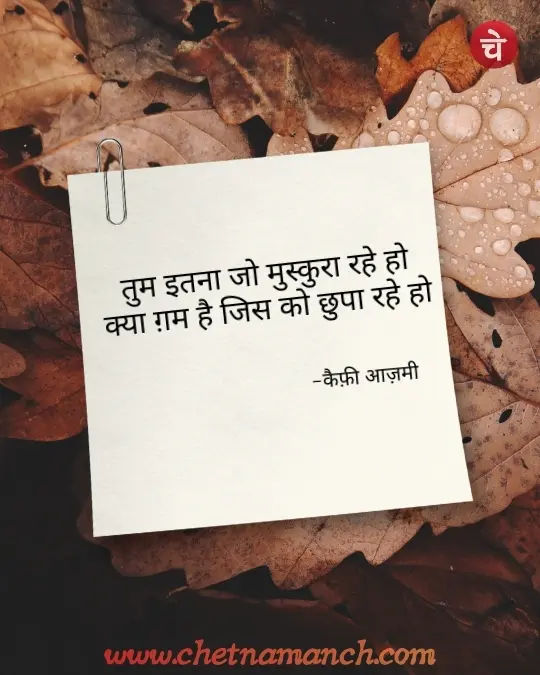 चे
तुम इतना जो मुस्कुरा रहे हो
क्या ग़म है जिस को छुपा रहे हो
-कैफ़ी आज़मी
www.chetnamanch.com